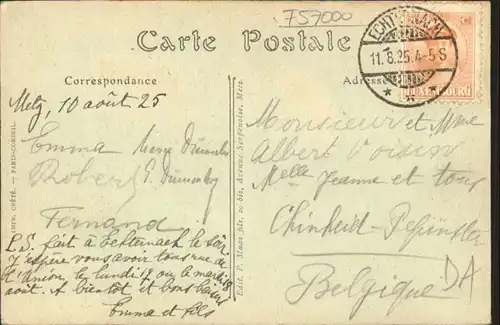 F57000
Carte Postale
ECHTERNACH
11.8.25. 4-5 S
LUXEMBOURG
Correspondance
Adresse
Metz, 10 août 25
Emma
Robert
Fernand
E.S. fait à Echternach le soir.
J'espère vous avoir tous rue de
l'Union, le lundi 17 ou le mardi 18
août. A bientôt et bons baisers
Emma et fils
Monsieur et Mme
Albert Voisin
Melle Jeanne et tous
Belgique
IMP. CRÉTÉ. — PARIS-CORBEIL
Edit. P. Maas fils, 20 bis, Avenue Serpenoise, Metz.